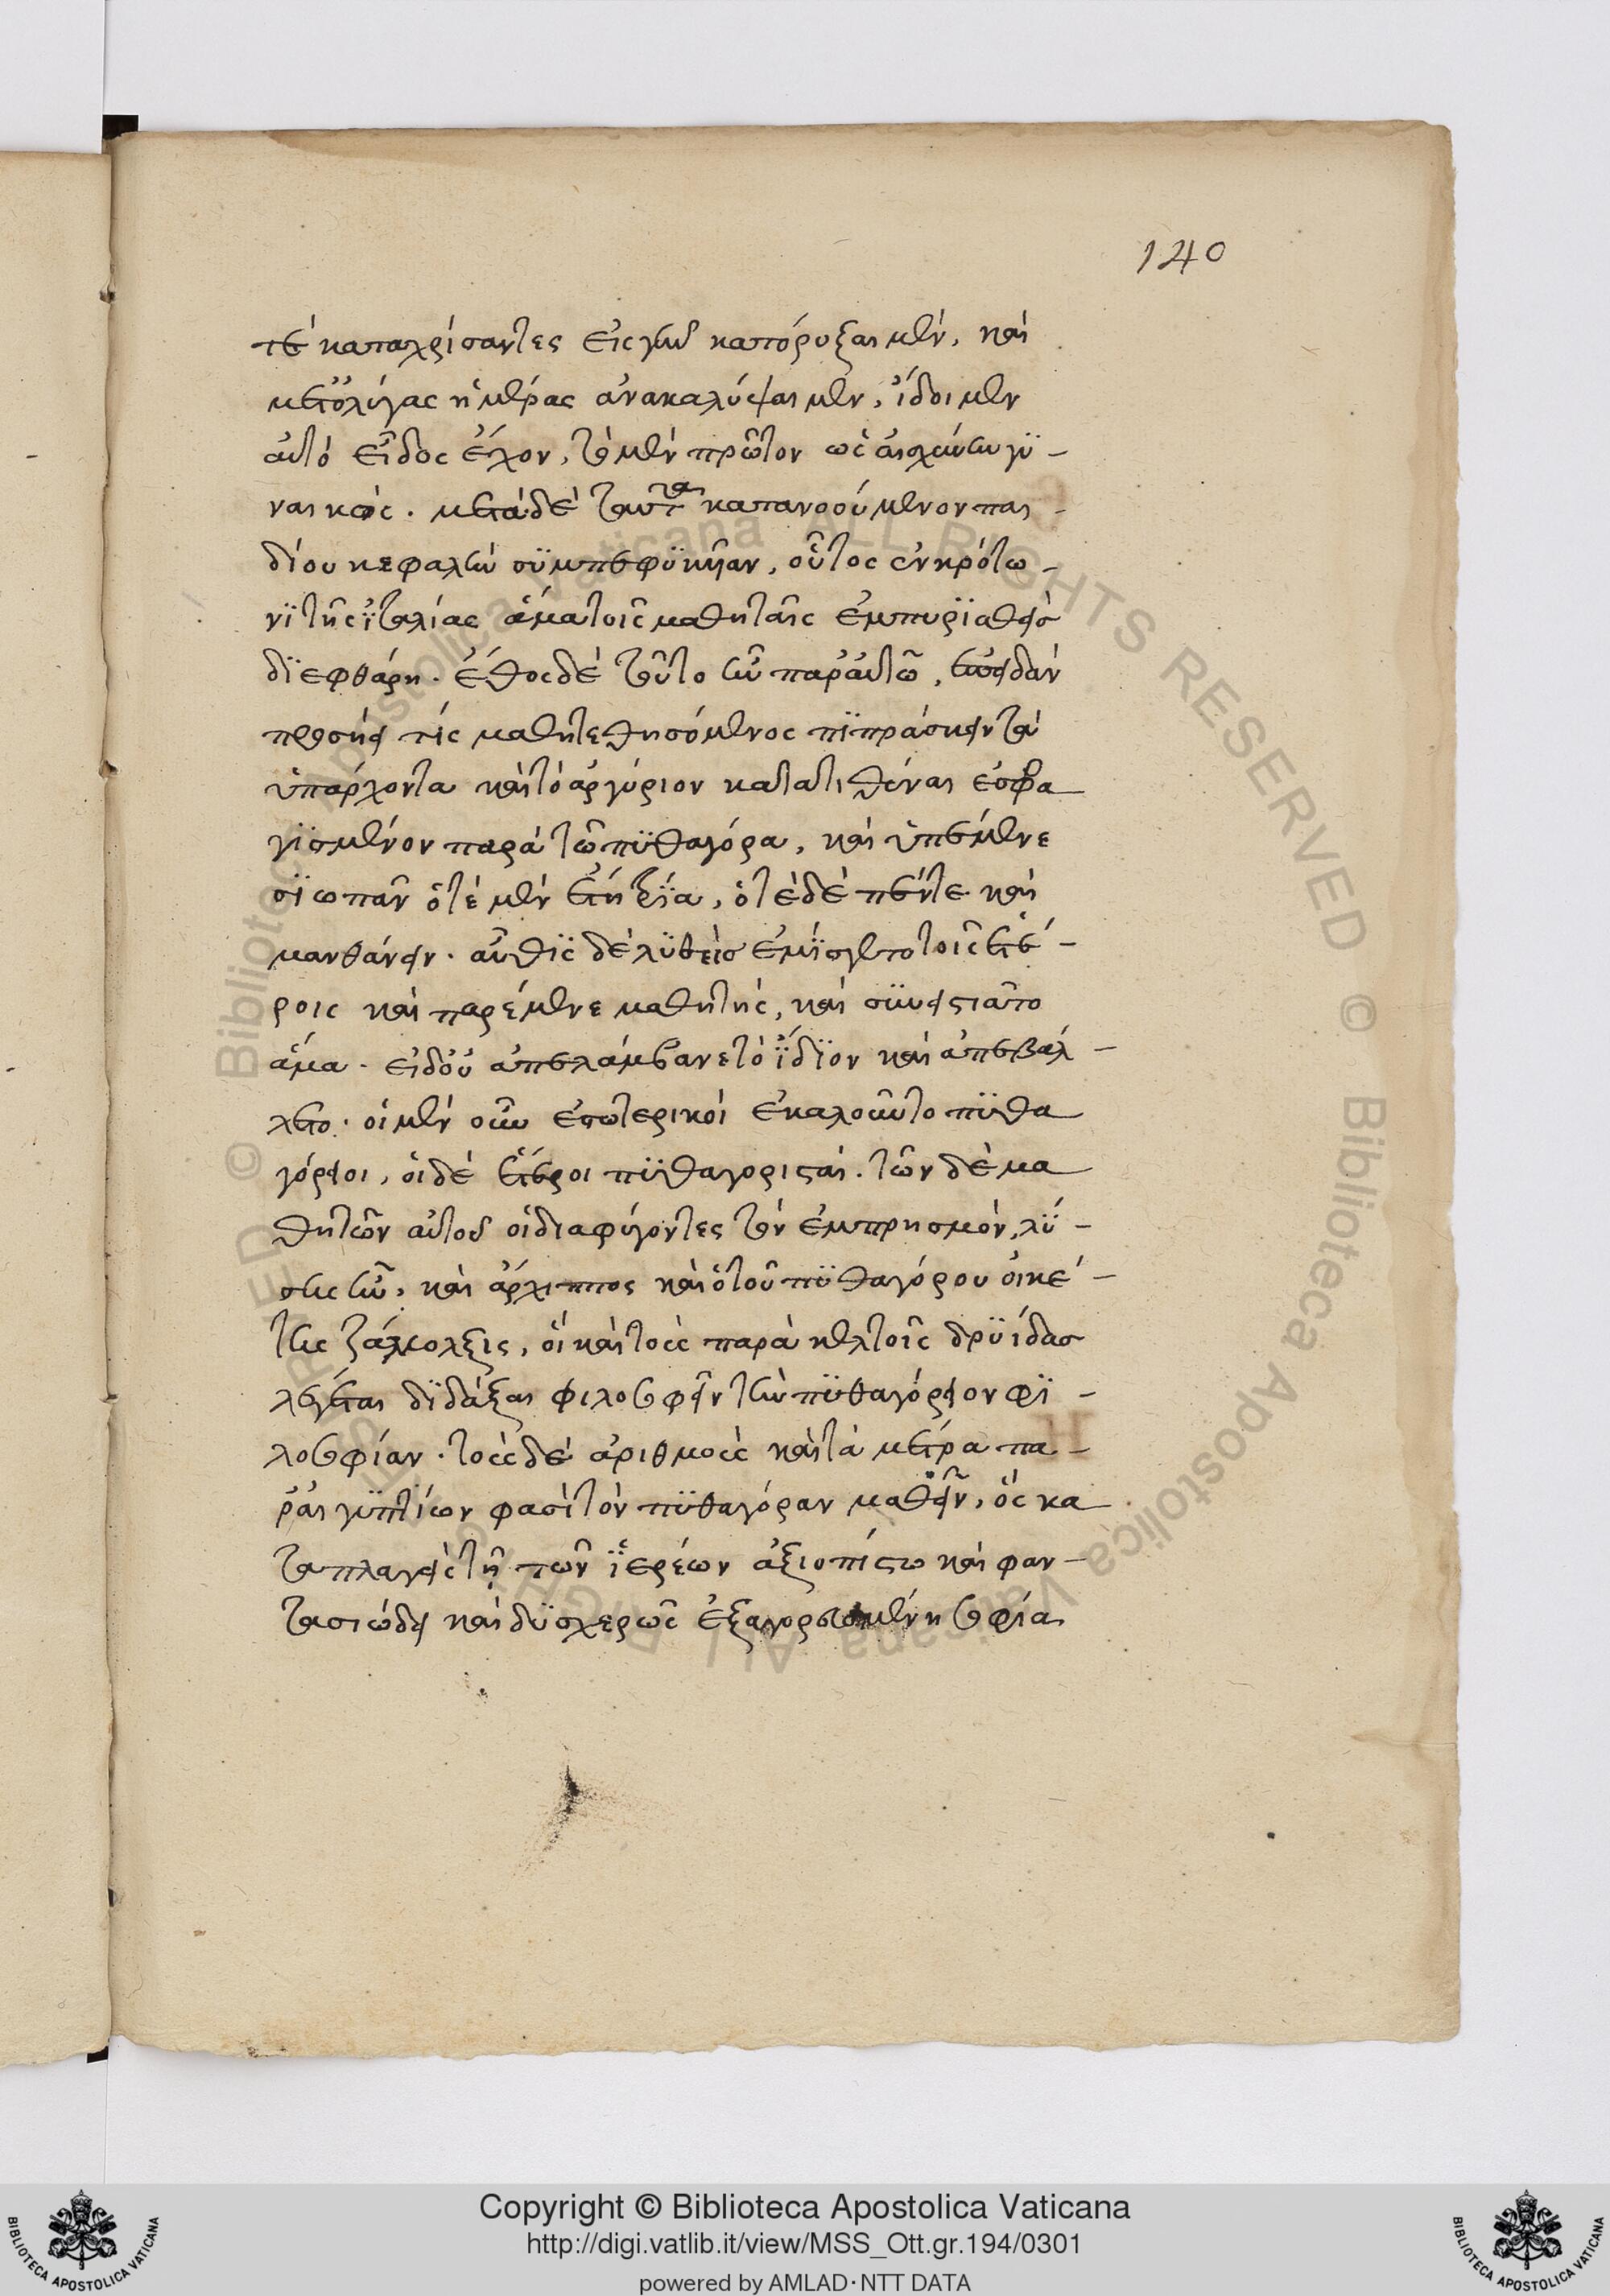 140
τε καταχρίσαντες εἰς γῆν κατορύξαιμεν, καὶ
μετ' ὀλίγας ἡμέρας ἀνακαλύψαιμεν, ἴδοιμεν
αὐτὸ εἶδος ἔχον, τὸ μὲν πρῶτον ὡς αἰσχύνην γϋ-
ναικός. μετὰ δὲ ταῦτα κατανοούμενον παι-
δίου κεφαλὴν σϋμπεφϋκυῖαν, οὗτος ἐν κρότω-
νϊ τῆς ἰταλίας ἅμα τοῖς μαθηταῖς ἐμπυρϊσθεὶς
δϊεφθάρη. ἔθος δὲ τοῦτο ἦν παρ' αὐτῶ, ἐπειδὰν
προσήει τίς μαθητεθησόμενος πϊπράσκειν τὰ
ὑπάρχοντα καὶ τὸ ἀργύριον κατατιθέναι ἐσφρα
γϊσμένον παρὰ τῶ πϋθαγόρα, καὶ ὑπέμενε
σϊωπᾶν ὁτὲ μὲν ἔτη τρϊα, ὁτὲ δὲ πέντε καὶ
μανθάνειν. αὖθϊς δὲ λϋθεὶς ἐμίσγετο τοῖς ἑτέ-
ροις καὶ παρέμενε μαθητὴς, καὶ σϋνειστιᾶτο
ἅμα. εἰ δ' οὐ ἀπελάμβανε τὸ ἴδϊον καὶ ἀπεβάλ-
λετο. οἱ μὲν οὖν ἐσωτερικοὶ ἐκαλοῦντο πϋθα
γόρειοι, οἱ δὲ ἕτεροι πϋθαγορισταί. τῶν δὲ μα
θητῶν αὐτοῦ οἱ διαφύγοντες τὸν ἐμπρησμὸν, λϋ-
σις ἦν, καὶ ἄρχιππος καὶ ὁ τοῦ πϋθαγόρου οἰκέ-
της ζάμολξις, ὃς καὶ τοὺς παρὰ κελτοῖς δρϋίδας
λέγεται δϊδάξαι φιλοσοφεῖν τὴν πϋθαγόρειον φϊ-
λοσοφίαν. τοὺς δὲ ἀριθμοὺς καὶ τὰ μέτρα πα-
ρ' αἰγϋπτίων φασὶ τὸν πϋθαγόραν μαθεῖν, ὃς κα
ταπλαγεὶς τῇ τῶν ἱερέων ἀξιοπίστω καὶ φαν-
τασιώδει καὶ δϋσχερῶς ἐξαγορευομένη σοφία
Copyright © Biblioteca Apostolica Vaticana
http://digi.vatlib.it/view/MSS_Ott.gr.194/0301
powered by AMLAD·NTT DATA